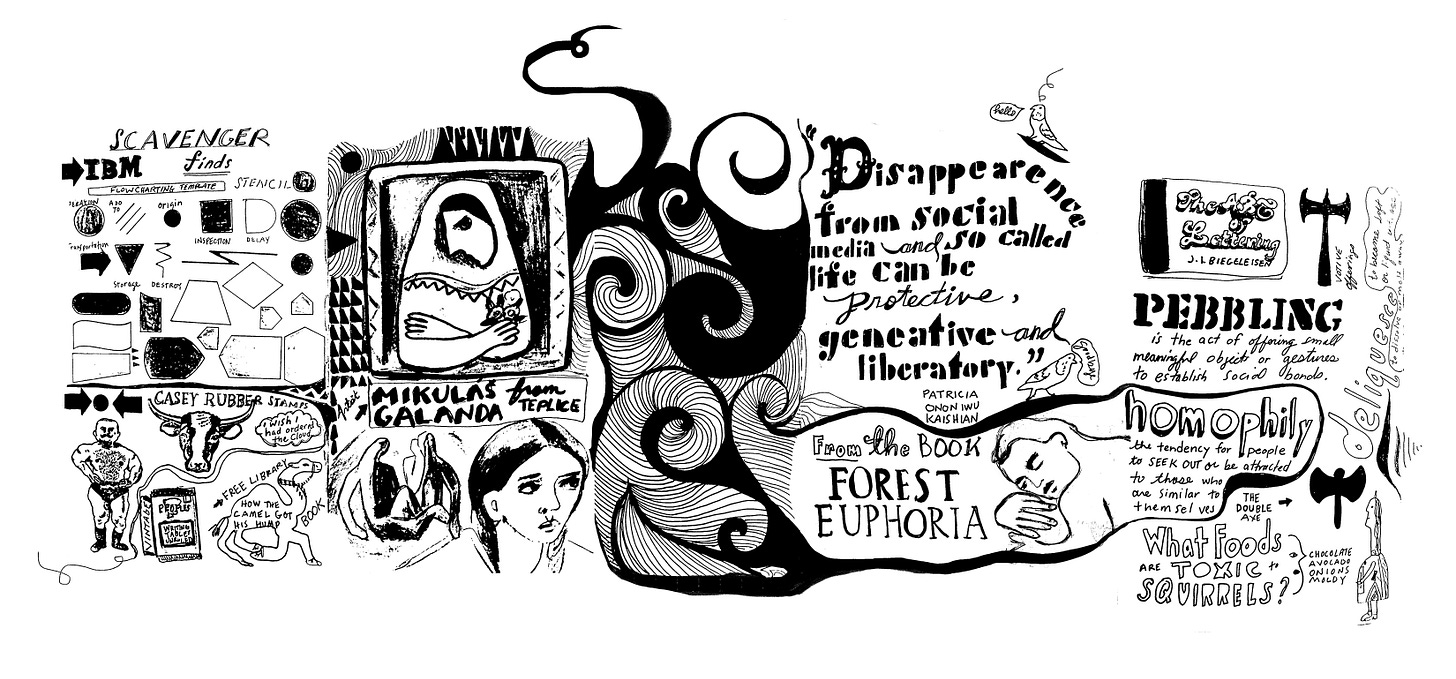 SCAVENGER
finds
IBM
FLOWCHARTING TEMPLATE
STENCIL
ADD
TO
origin
INSPECTION
DELAY
Transportation
Storage
DESTROY
CASEY RUBBER STAMPS
I wish I
had ordered
the Cloud
VINTAGE
PEOPLE
WRITING
TABLET
RULED
FREE LIBRARY
HOW THE
CAMEL GOT
HIS HUMP
BOOK
Artist
MIKULAŠ from
GALANDA TEPLICE
hello
"Disappearence
from social
media and so called
life can be
protective,
geneative and
liberatory."
PATRICIA
ONONIWU
KAISHIAN
From the BOOK
FOREST
EUPHORIA
The ABC
of
Lettering
J.I. BIEGELEISEN
VOTIVE
offerings
PEBBLING
is the act of offering small
meaningful objects or gestures
to establish social bonds.
deliquesce
to become soft
or liquid w/age
homophily
the tendency for people
to SEEK OUT or be attracted
to those who
are similar to
themselves
THE
DOUBLE
AXE
What Foods
ARE TOXIC to
SQUIRRELS?
CHOCOLATE
AVOCADO
ONIONS
MOLDY